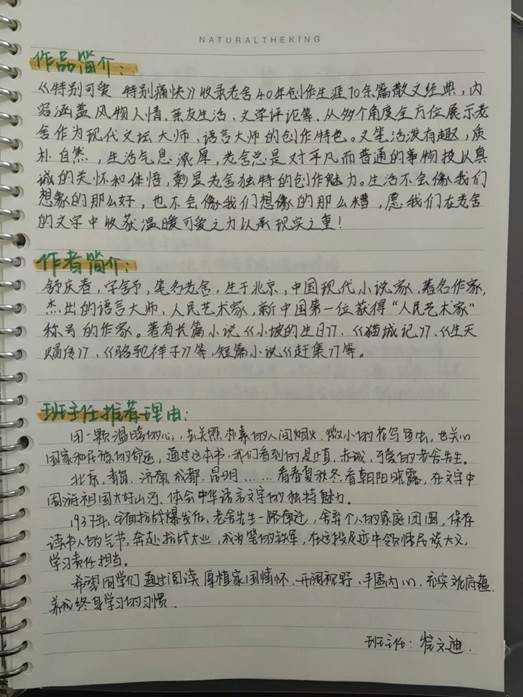 NATURALTHEKING
作品简介:
《特别可爱 特别痛快》收录老舍40年创作生涯70余篇散文经典,内
容涵盖风物人情、亲友生活、文学评论等,从多个角度全方位展示老
舍作为现代文坛大师、语言大师的创作特色。文笔活泼有趣,质
朴自然,生活气息浓厚,老舍总是对平凡而普通的事物投以真
诚的关怀和体悟,彰显老舍独特的创作魅力。生活不会像我们
想象的那么好,也不会像我们想像的那么糟,愿我们在老舍
的文字中收获温暖可爱之力以承现实之重!
作者简介:
舒庆春,字舍予,笔名老舍,生于北京,中国现代小说家、著名作家,
杰出的语言大师,人民艺术家,新中国第一位获得“人民艺术家”
称号的作家。著有长篇小说《小坡的生日》、《猫城记》、《牛天
赐传》、《骆驼祥子》等,短篇小说《赶集》等。
班主任推荐理由:
用一颗温暖的心,去关照朴素的人间烟火、微小的花鸟鱼虫,也关心
国家和民族的命运,通过这本书,我们看到的是正直、赤诚、可爱的老舍先生。
北京、青岛、济南、成都、昆明……看春夏秋冬看朝阳晚露,在文字中
围游祖国大好山河、体会中华语言文字的独特魅力。
1937年,全面抗战爆发后,老舍先生一路南迁,舍弃个人的家庭团圆,保存
读书人的气节,奔赴抗战大业,成为笔的铁军,在这段反恋中领悟民族大义,
学习责任担当。
希望同学们通过阅读厚植家国情怀、开阔视野、丰富内心、充实底蕴、
养成终身学习的习惯。
班主任:崔文迪